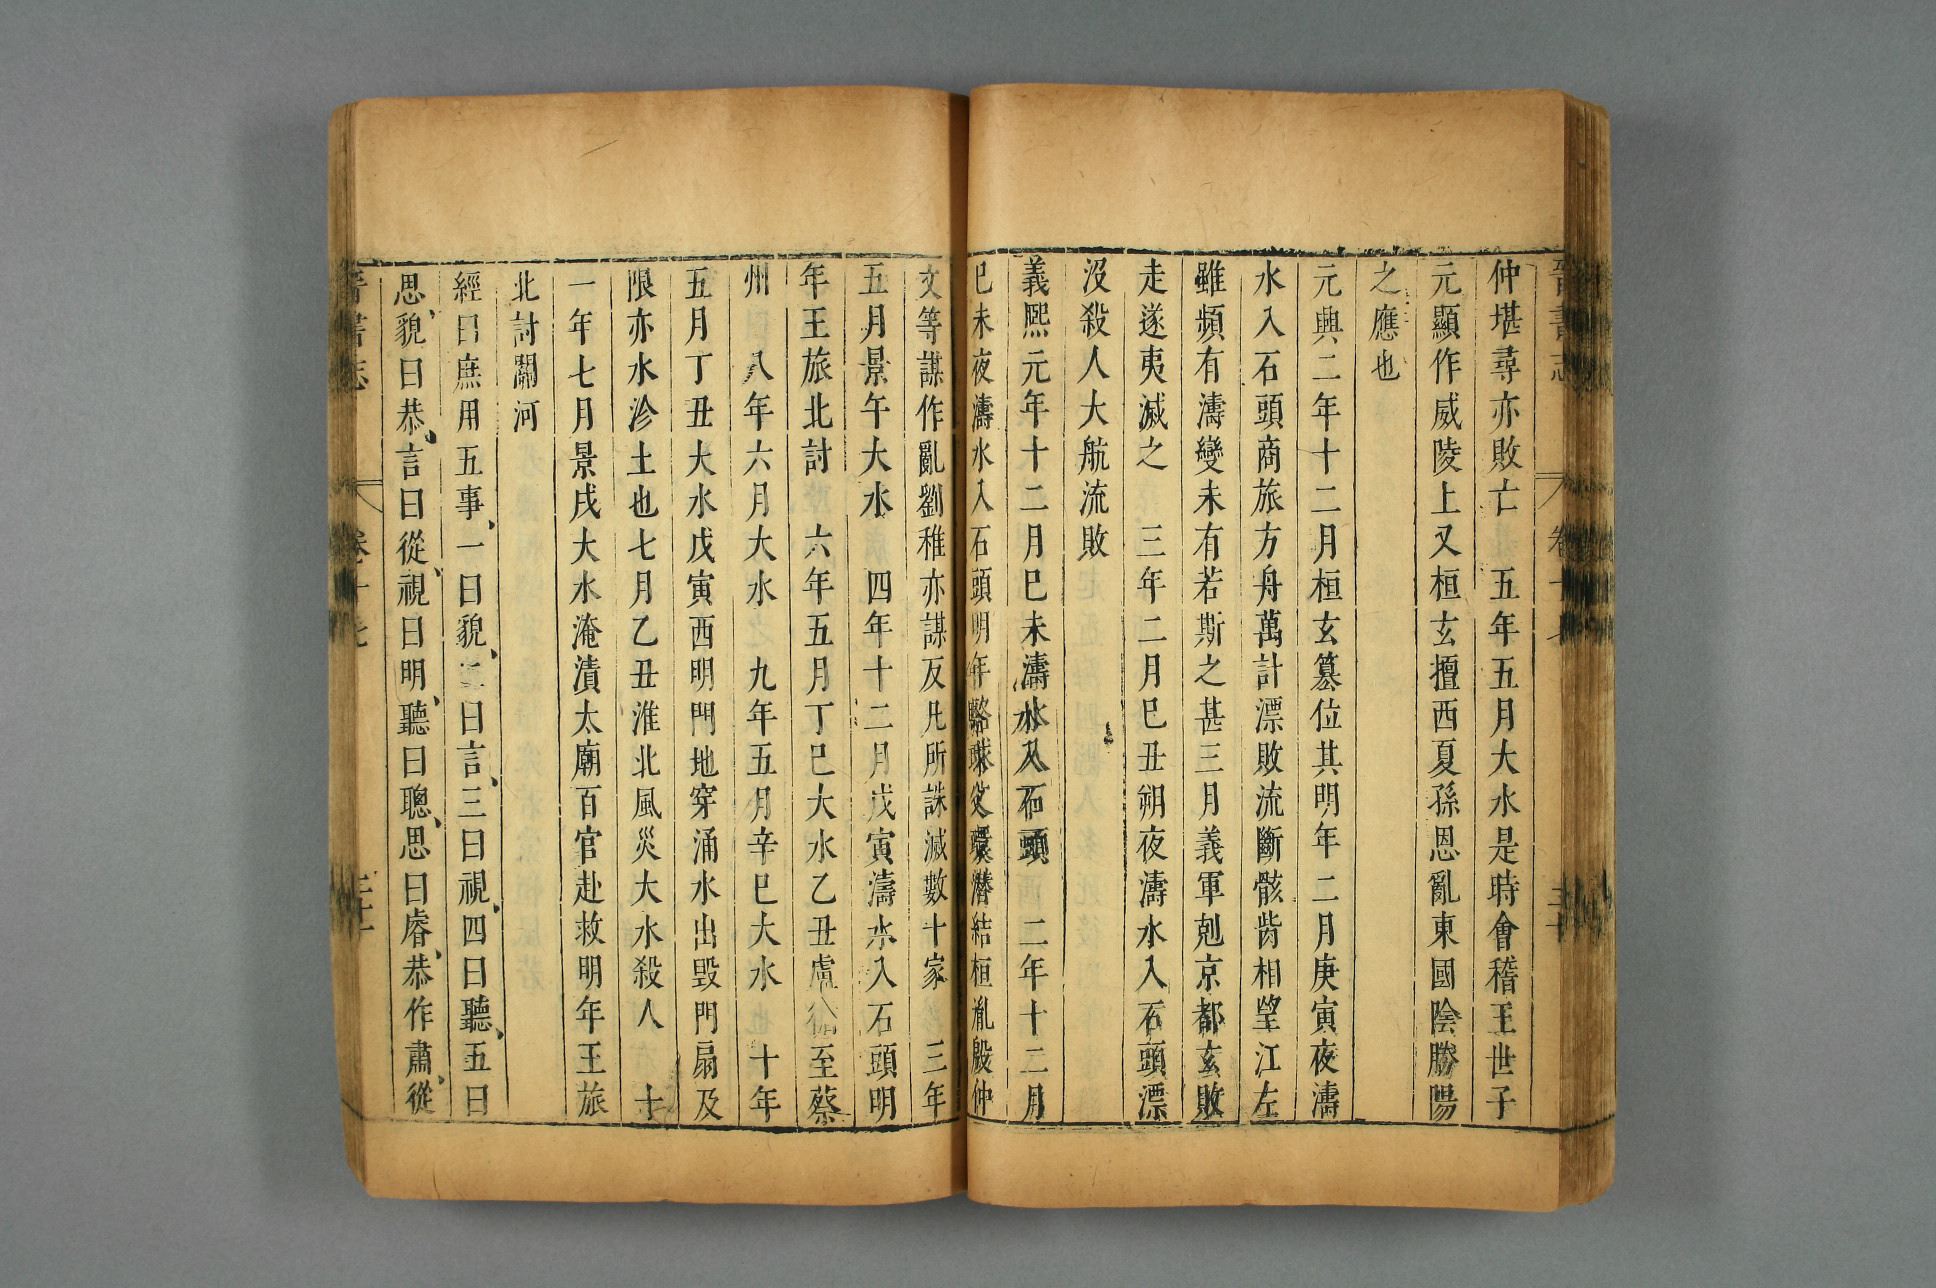 晉書志 卷十七
仲堪尋亦敗亡 五年五月大水是時會稽王世子
元顯作威陵上又桓玄擅西夏孫恩亂東國陰勝陽
之應也
元興二年十二月桓玄篡位其明年二月庚寅夜濤
水入石頭商旅方舟萬計漂敗流斷骸胔相望江左
雖頻有濤變未有若斯之甚三月義軍剋京都玄敗
走遂夷滅之 三年二月巳丑朔夜濤水入石頭漂
沒殺人大航流敗
義熙元年十二月巳未濤水入石頭 二年十二月
巳未夜濤水入石頭明年駱球父環潛結桓胤殷仲
文等謀作亂劉稚亦謀反凡所誅滅數十家 三年
五月景午大水 四年十二月戊寅濤水入石頭明
年王旅北討 六年五月丁巳大水乙丑盧循至蔡
州 八年六月大水 九年五月辛巳大水 十年
五月丁丑大水戊寅西明門地穿涌水出毀門扇及
限亦水沴土也七月乙丑淮北風災大水殺人 十
一年七月景戌大水淹漬太廟百官赴救明年王旅
北討關河
經曰庶用五事一曰貌二曰言三曰視四曰聽五曰
思貌曰恭言曰從視曰明聽曰聰思曰睿恭作肅從
晉書志 卷十七